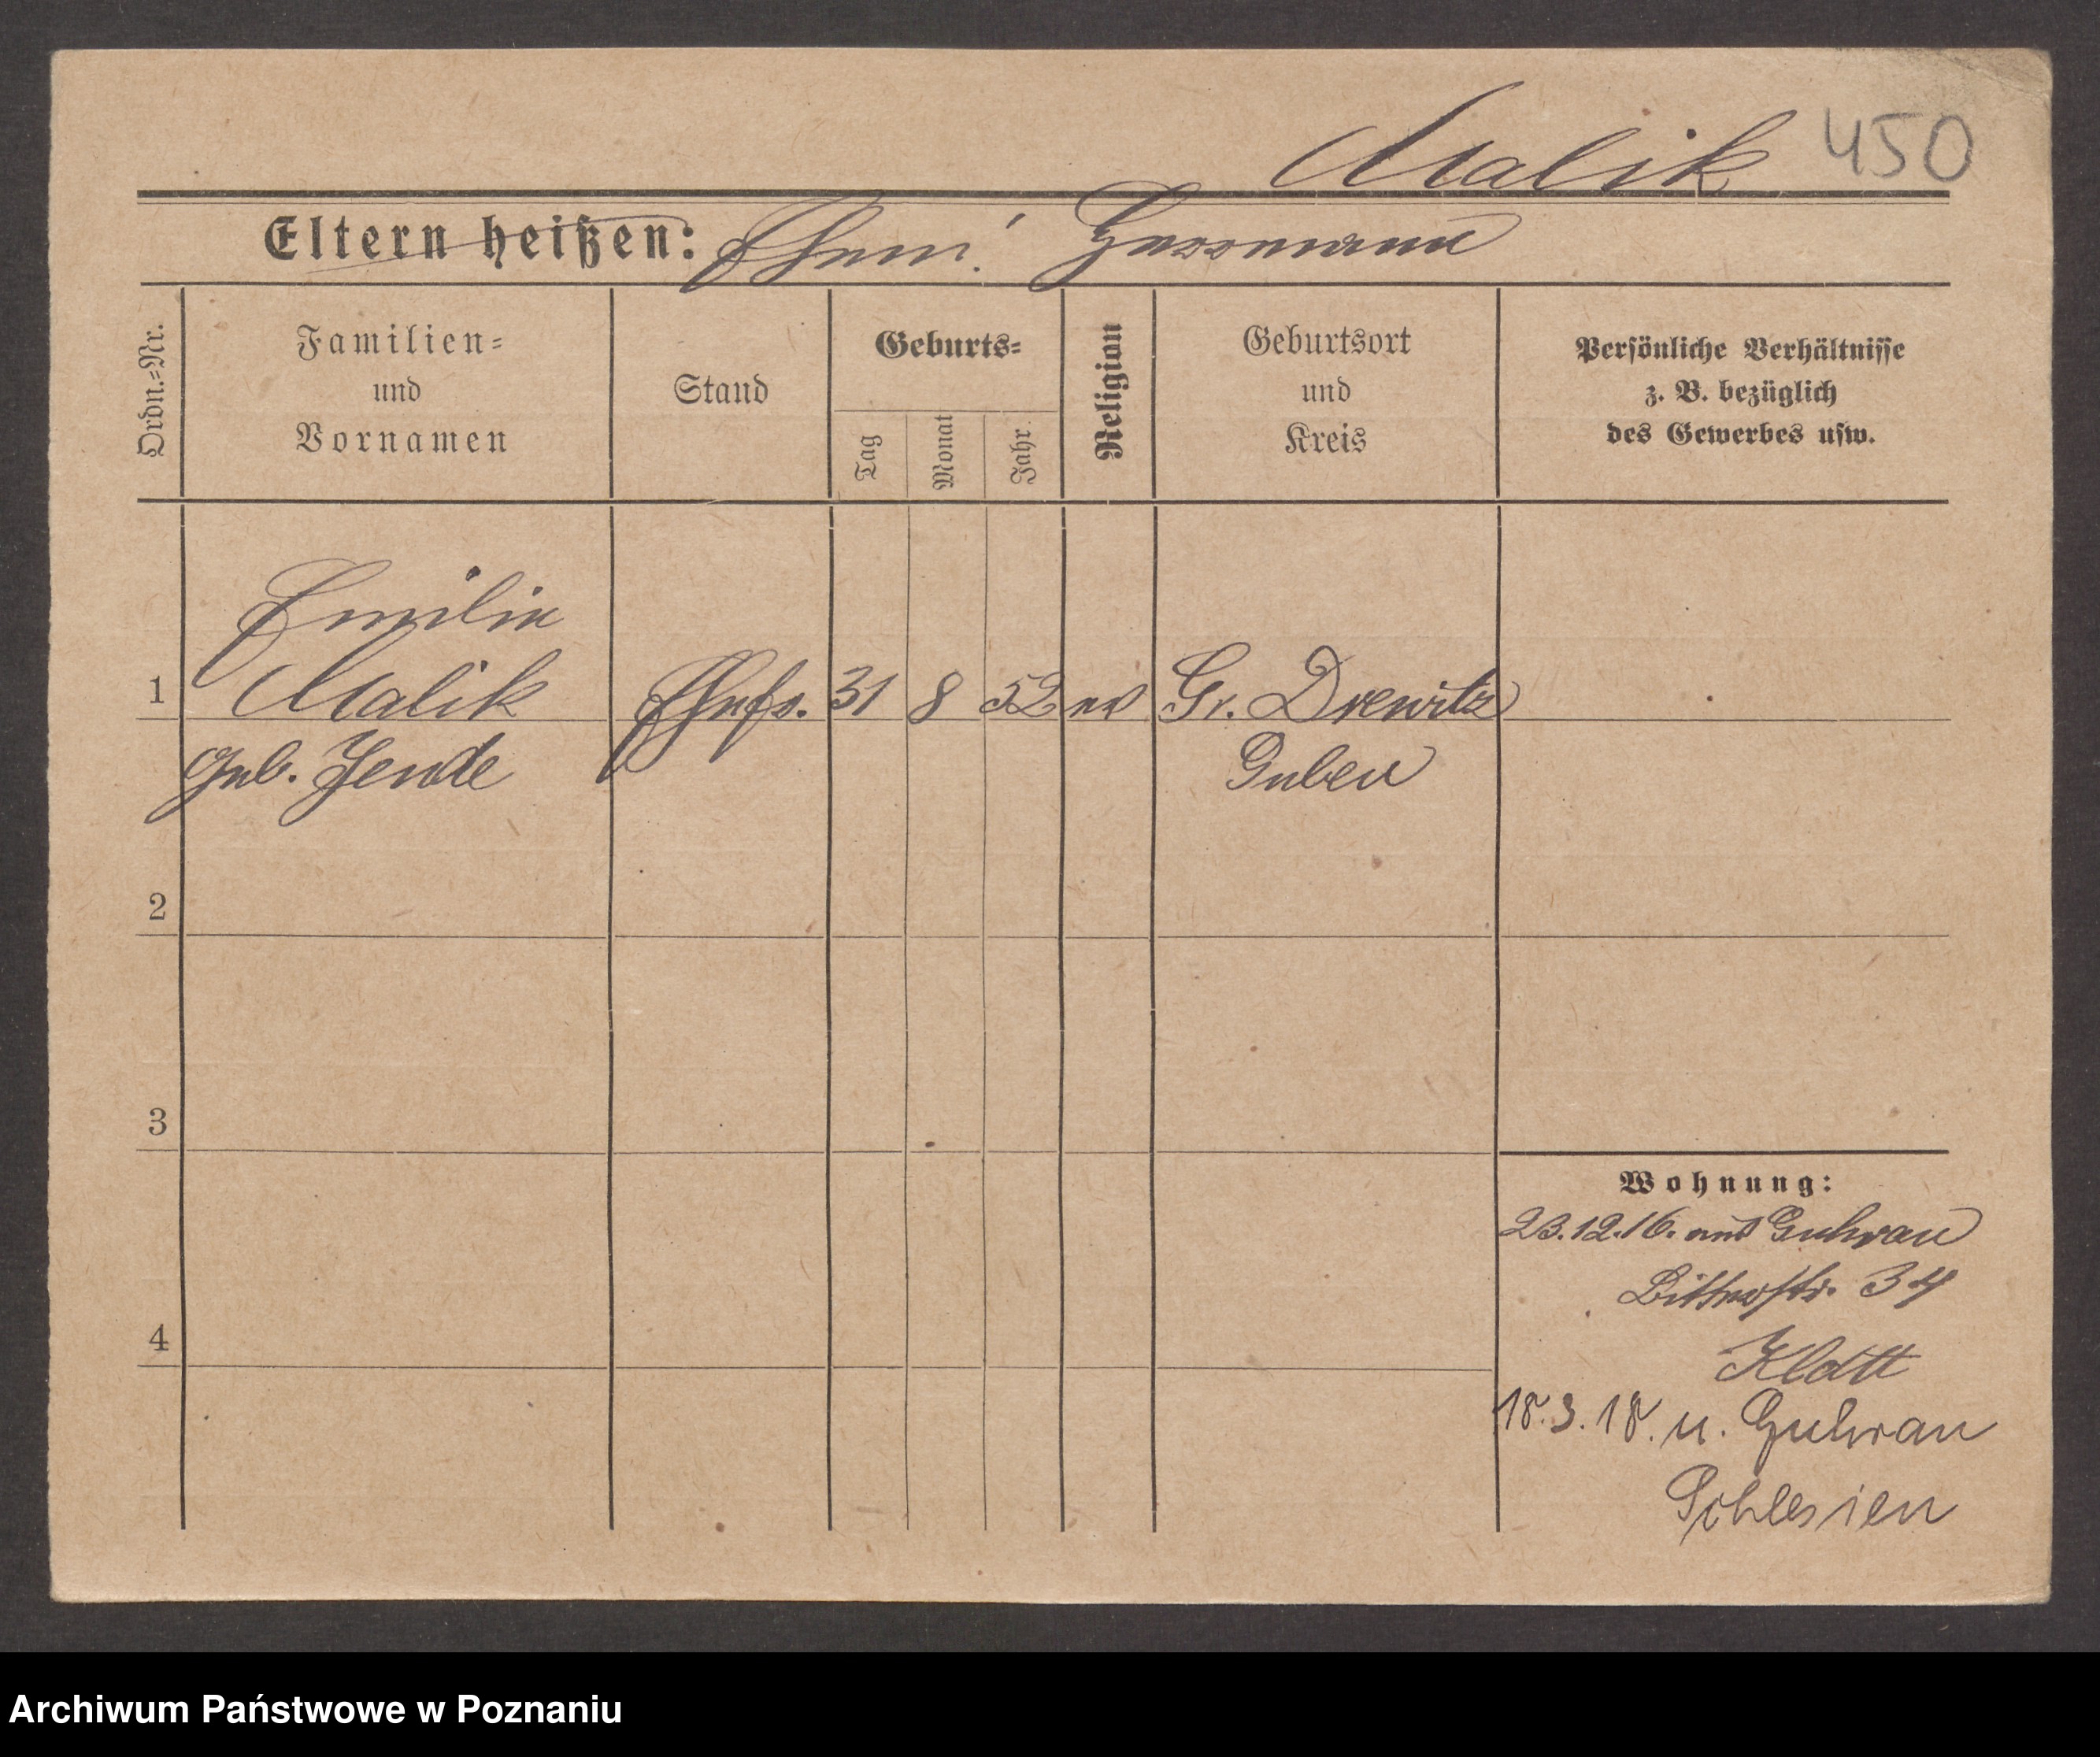 Malik 450
Eltern heißen: Ehem: Hermann
Ordn.=Nr.
Familien=
und
Vornamen
Stand
Geburts=
Tag
Monat
Jahr.
Religion
Geburtsort
und
Kreis
Persönliche Verhältnisse
z. B. bezüglich
des Gewerbes usw.
Emilie
1 Malik Ehefr. 31 8 52 ev Gr. Drewitz
geb. Jende Guben
2
3
Wohnung:
23.12.16. aus Guhrau
34
4
Klatt
18.3.18. n. Guhrau
Schlesien
Archiwum Państwowe w Poznaniu